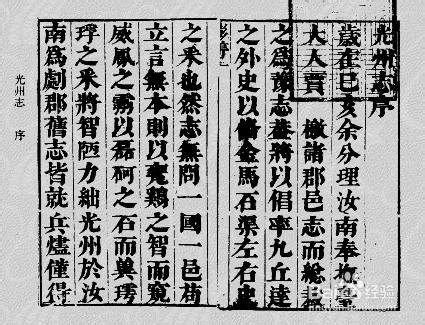 光州志序
歲在已亥余分理汝南奉
大人賈 檄諸郡邑志而總
之爲豫志蓋將以倡率九丘達
之外史以備金馬石渠左右史
之釆也然志無問一國一邑苟
立言無本則以甕鷄之智而窺
威鳳之霧以磊砢之石而
之釆將智陋力絀光州於汝
南爲劇郡舊志皆就兵燼僅得
光州志 序
Baidu经验